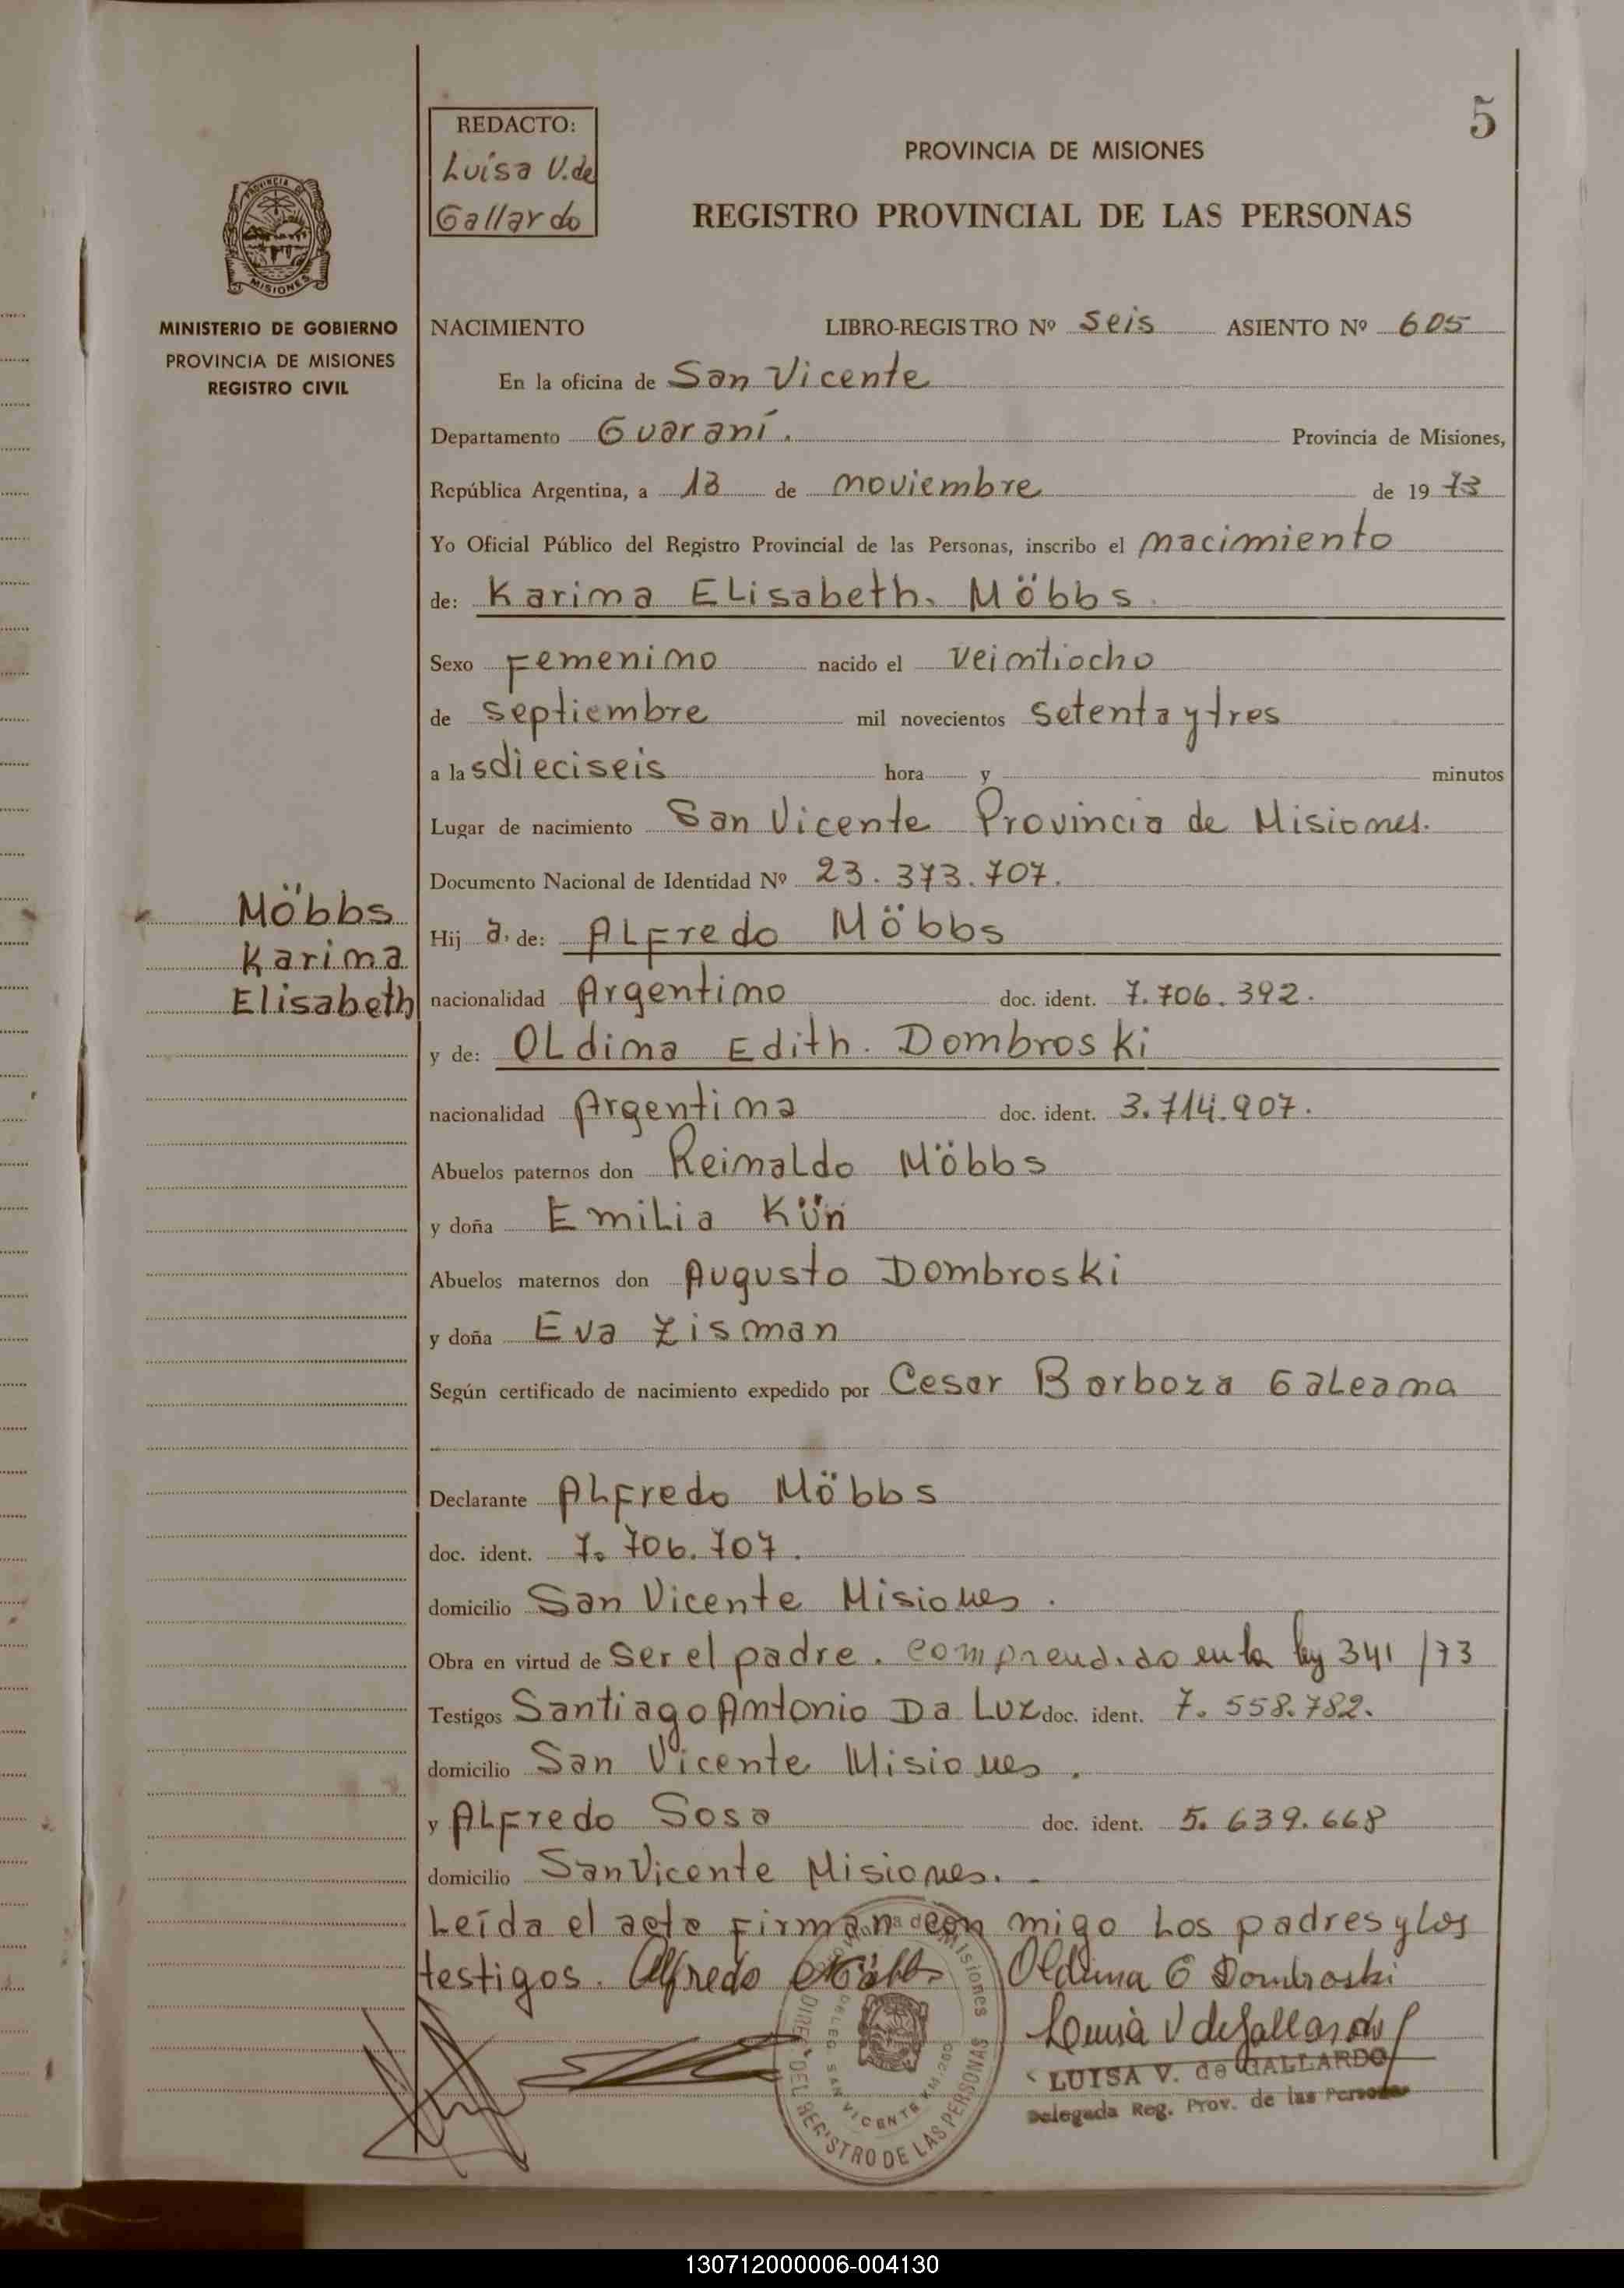 5
REDACTO:
Luisa V. de
Gallardo
PROVINCIA DE MISIONES
REGISTRO PROVINCIAL DE LAS PERSONAS
PROVINCIA DE
MISIONES
MINISTERIO DE GOBIERNO
PROVINCIA DE MISIONES
REGISTRO CIVIL
NACIMIENTO LIBRO-REGISTRO Nº seis ASIENTO Nº 605
En la oficina de San Vicente
Departamento Guaraní. Provincia de Misiones,
República Argentina, a 13 de noviembre de 1973
Yo Oficial Público del Registro Provincial de las Personas, inscribo el nacimiento
de: Karina Elisabeth. Möbbs.
Sexo Femenino nacido el veintiocho
de septiembre mil novecientos setenta y tres
a las dieciseis hora y minutos
Lugar de nacimiento San Vicente Provincia de Misiones.
Documento Nacional de Identidad Nº 23.373.707.
Möbbs
Karina
Elisabeth
Hij a. de: Alfredo Möbbs
nacionalidad Argentino doc. ident. 7.706.392.
y de: Oldina Edith. Dombroski
nacionalidad Argentina doc. ident. 3.714.907.
Abuelos paternos don Reinaldo Möbbs
y doña Emilia Kün
Abuelos maternos don Augusto Dombroski
y doña Eva Zisman
Según certificado de nacimiento expedido por Cesar Barboza Galeana
Declarante Alfredo Möbbs
doc. ident. 7.706.707.
domicilio San Vicente Misiones.
Obra en virtud de ser el padre. comprendido en la ley 341/73
Testigos Santiago Antonio Da Luz doc. ident. 7.558.782.
domicilio San Vicente Misiones.
y Alfredo Sosa doc. ident. 5.639.668
domicilio San Vicente Misiones.-
Leída el acta firman con migo los padres y los
testigos. Alfredo Möbbs Oldina E Dombroski
Luisa V de Gallardo
LUISA V. de GALLARDO
Delegada Reg. Prov. de las Personas
Provincia de Misiones
DIREC. DEL REGISTRO DE LAS PERSONAS
DELEG. SAN VICENTE KM.
130712000006-004130